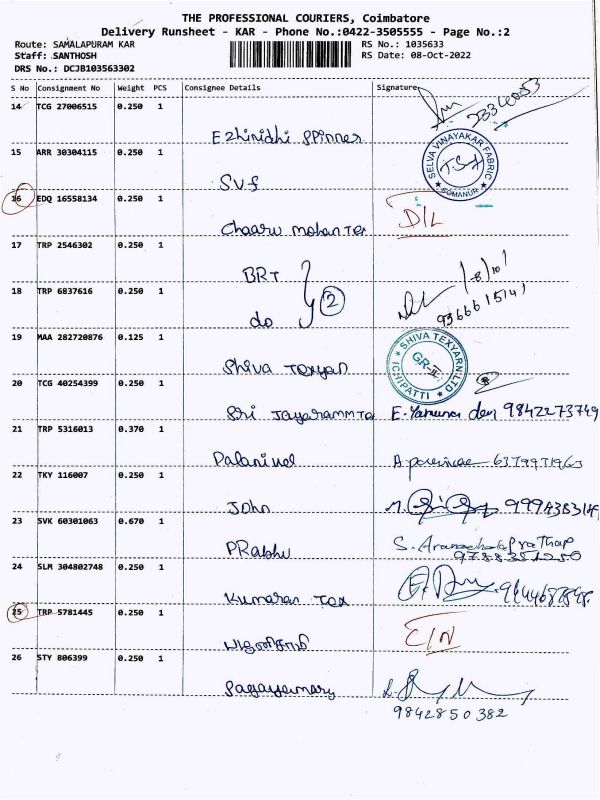 THE PROFESSIONAL COURIERS, Coimbatore
Delivery Runsheet - KAR - Phone No.:0422-3505555 - Page No.:2
Route: SAMALAPURAM KAR RS No.: 1035633
Staff: SANTHOSH RS Date: 08-Oct-2022
DRS No.: DCJB103563302
S No Consignment No Weight PCS Consignee Details Signature
14 TCG 27006515 0.250 1
Ezhinidhi Spinner
15 ARR 30304115 0.250 1
SVF
SELVA VINAYAKAR FABRIC
SOMANUR
16 EDQ 16558134 0.250 1
Chaaru mohan Tex D/L
17 TRP 2546302 0.250 1
BRT
18 TRP 6837616 0.250 1
do 2
8/10/
9366615141
19 MAA 282720876 0.125 1
Shiva Texyan
SHIVA TEXYARN LTD
GR-II
ICHIPATTI
20 TCG 40254399 0.250 1
Sri Jayaramm Tex 9842273749
21 TRP 5316013 0.370 1
Palanivel
22 TKY 116007 0.250 1
John
23 SVK 60301063 0.670 1
PRabhu S. Arunachala Prathap
9788351250
24 SLM 304802748 0.250 1
Kumaran Tex
25 TRP 5781445 0.250 1
பழனிசாமி C/N
26 STY 806399 0.250 1
Sagayamary
9842850382